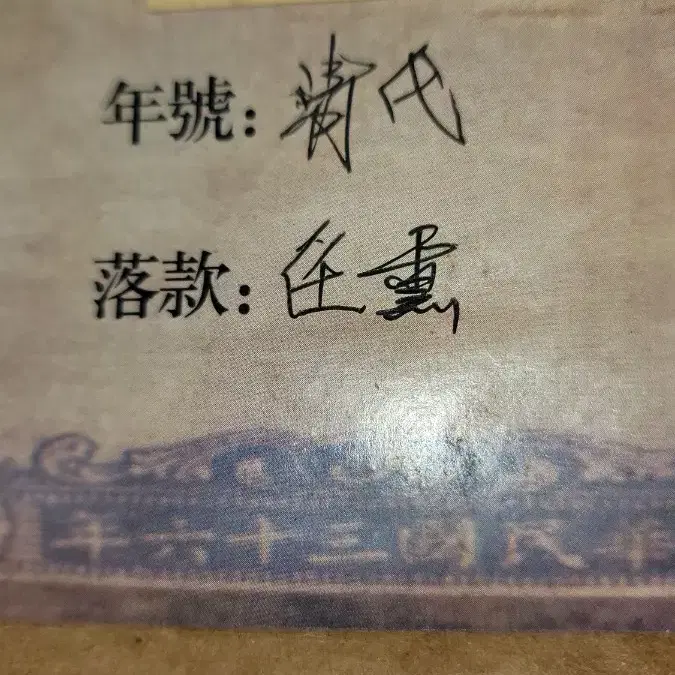 年號：清代
落款：任薰
年六十三國民華